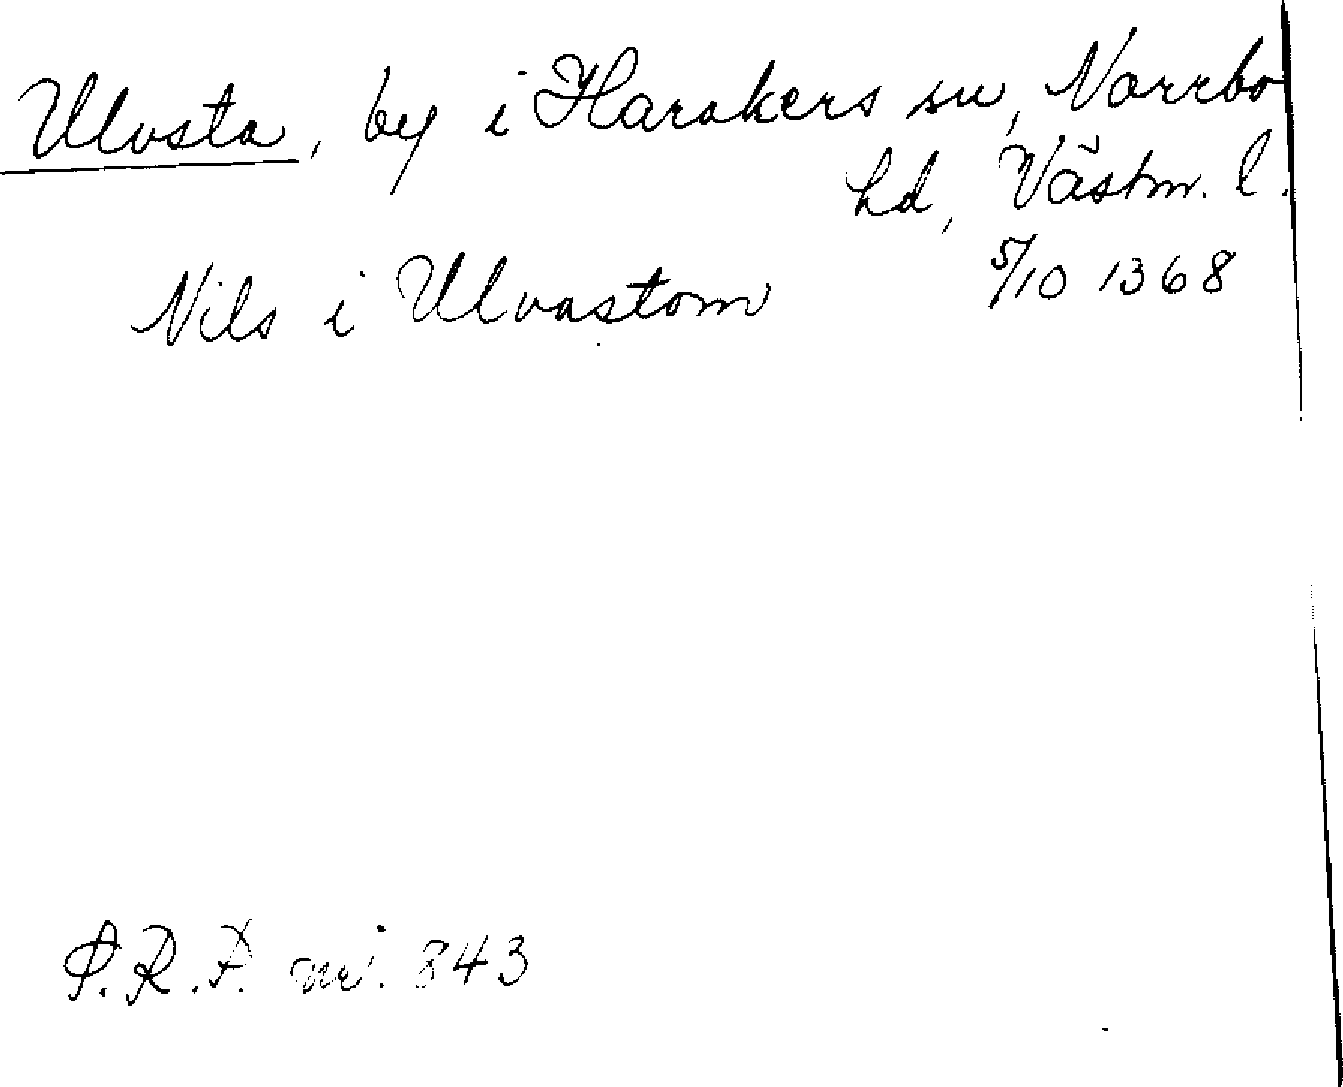 Ulvsta, by i Harakers sn, Norrbo
hd, Västm. l.
Nils i Ulvastom 5/10 1368
P.R.P. nr. 843